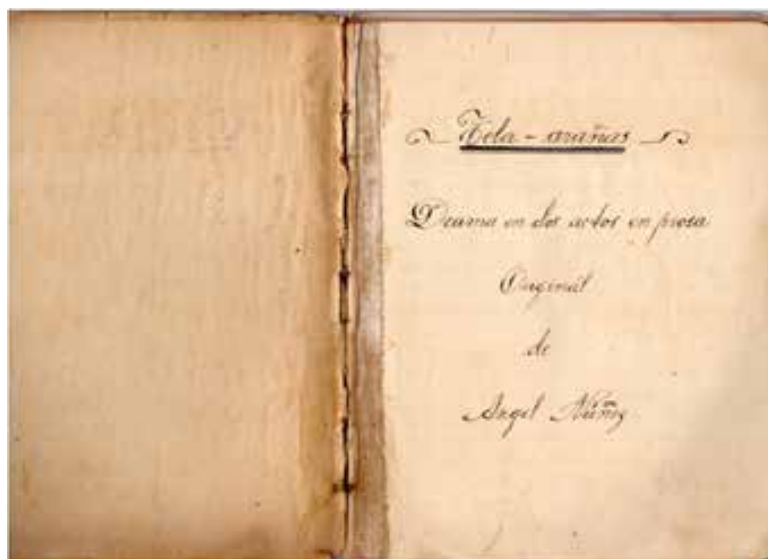 Tela-arañas
Drama en dos actos en prosa
Original
de
Angel Núñez